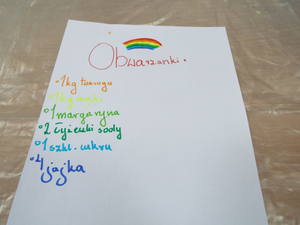 Obwarzanki.
1 kg twarogu
1 kg mąki
1 margaryna
2 łyżeczki sody
1 szkl. cukru
4 jajka